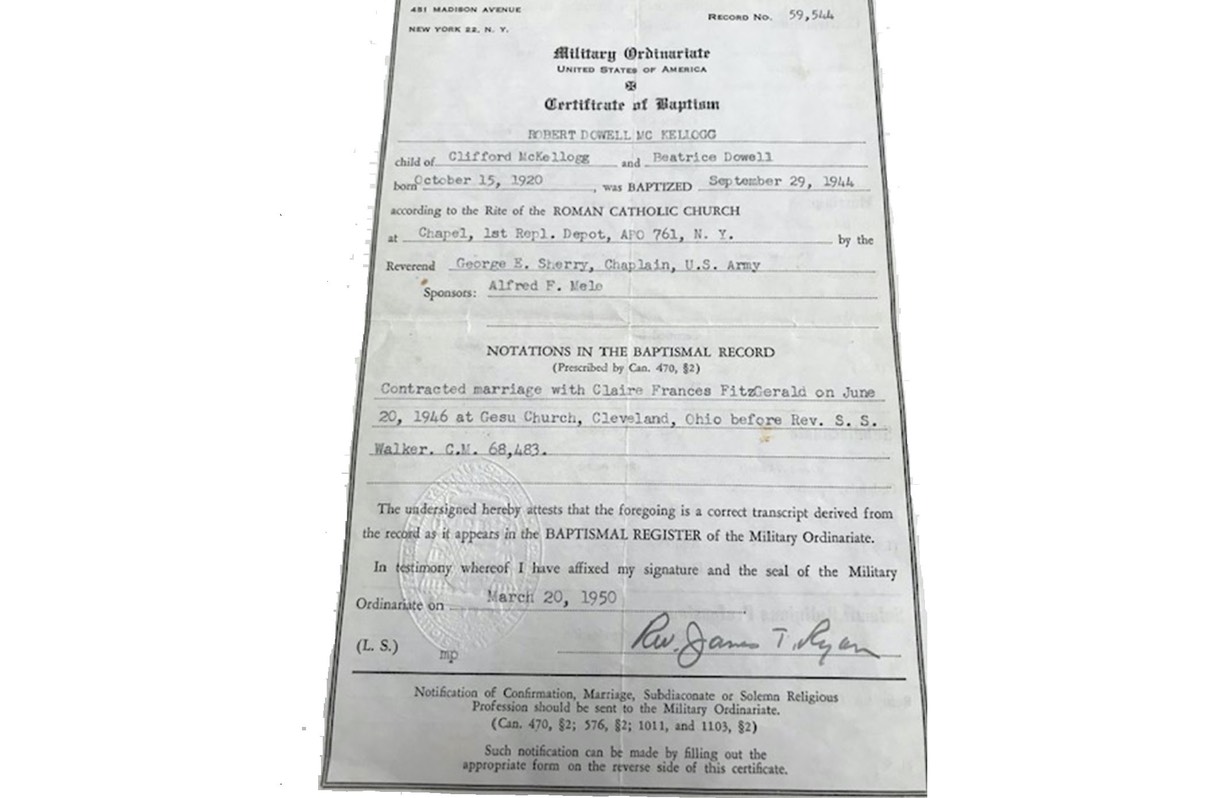 451 MADISON AVENUE
NEW YORK 22, N. Y.
RECORD No. 59,544
Military Ordinariate
UNITED STATES OF AMERICA
Certificate of Baptism
ROBERT DOWELL MC KELLOGG
child of Clifford McKellogg and Beatrice Dowell
born October 15, 1920, was BAPTIZED September 29, 1944
according to the Rite of the ROMAN CATHOLIC CHURCH
at Chapel, 1st Repl. Depot, APO 761, N. Y. by the
Reverend George E. Sherry, Chaplain, U.S. Army
Sponsors: Alfred F. Mele
NOTATIONS IN THE BAPTISMAL RECORD
(Prescribed by Can. 470, §2)
Contracted marriage with Claire Frances FitzGerald on June
20, 1946 at Gesu Church, Cleveland, Ohio before Rev. S. S.
Walker. C.M. 68,483.
The undersigned hereby attests that the foregoing is a correct transcript derived from
the record as it appears in the BAPTISMAL REGISTER of the Military Ordinariate.
In testimony whereof I have affixed my signature and the seal of the Military
Ordinariate on March 20, 1950
Rev. James T. Ryan
(L. S.) mp
Notification of Confirmation, Marriage, Subdiaconate or Solemn Religious
Profession should be sent to the Military Ordinariate.
(Can. 470, §2; 576, §2; 1011, and 1103, §2)
Such notification can be made by filling out the
appropriate form on the reverse side of this certificate.